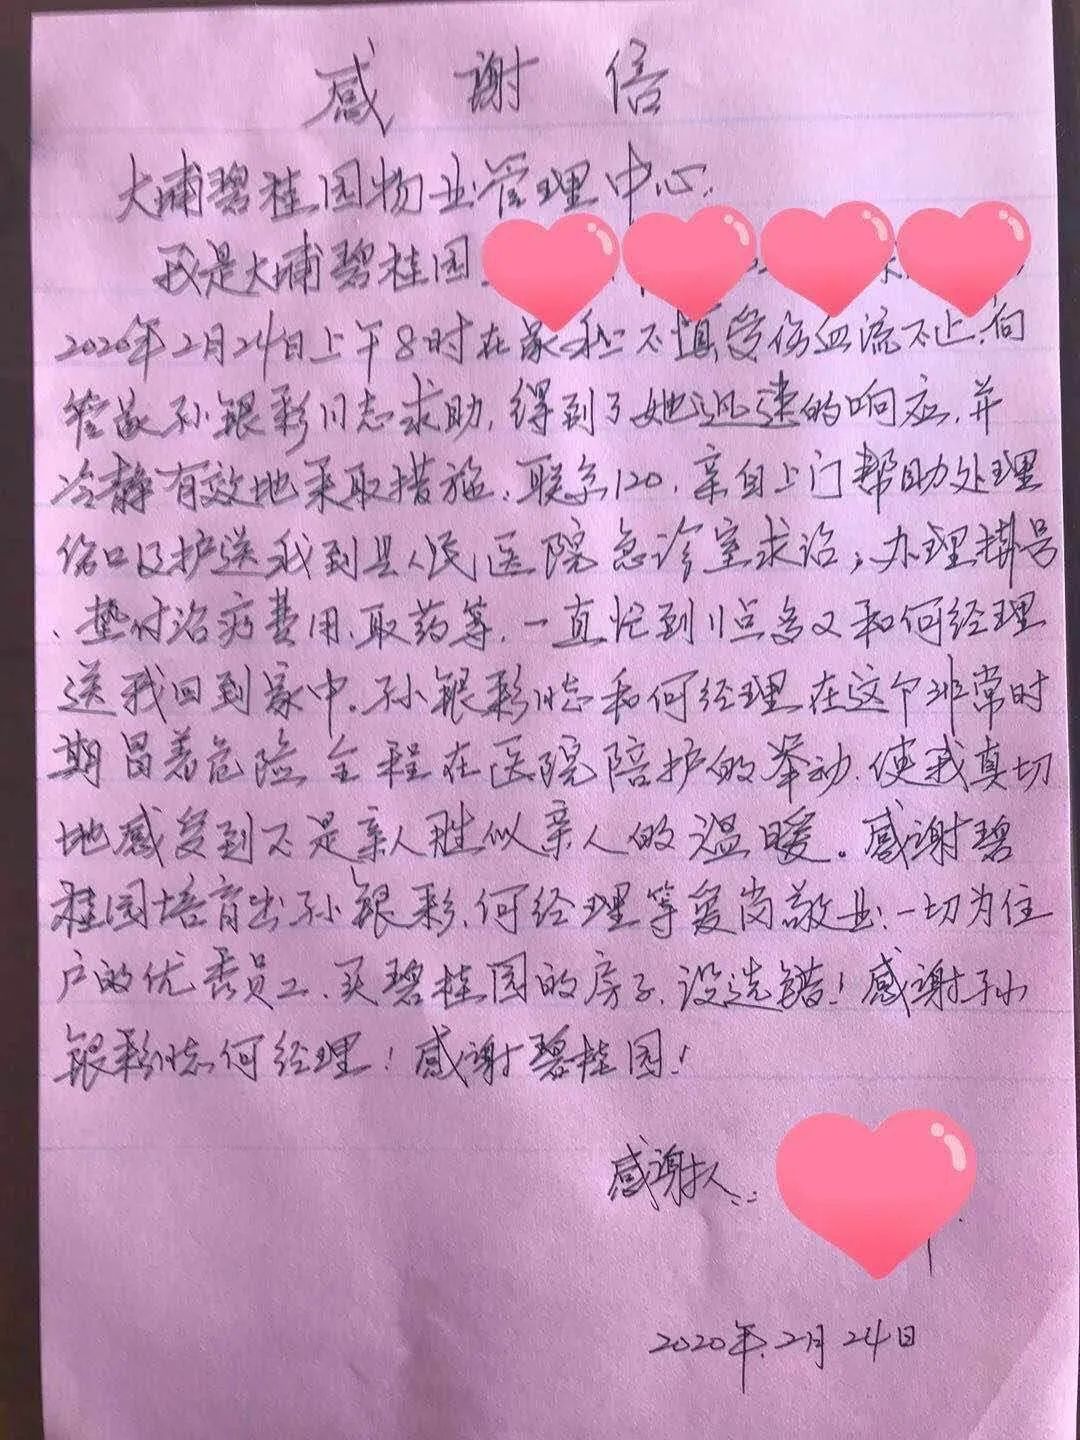 感谢信
大埔碧桂园物业管理中心:
我是大埔碧桂园
2020年2月24日上午8时在家私不慎受伤血流不止,向
管家孙银彩同志求助,得到了她迅速的响应,并
冷静有效地采取措施,联系120,亲自上门帮助处理
伤口及护送我到县人民医院急诊室求治,办理挂号
、垫付治病费用、取药等,一直忙到11点多又和何经理
送我回到家中。孙银彩同志和何经理在这个非常时
期冒着危险全程在医院陪护的举动,使我真切
地感受到不是亲人胜似亲人的温暖。感谢碧
桂园培育出孙银彩、何经理等爱岗敬业、一切为住
户的优秀员工、买碧桂园的房子,没选错!感谢孙
银彩同志何经理!感谢碧桂园!
感谢人:
2020年2月24日